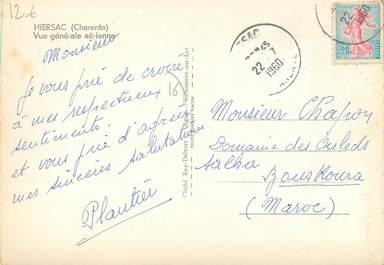 12.€
HIERSAC (Charente)
Vue générale aérienne
Monsieur
Je vous prie de croire
à mes respectueux
sentiments.
et vous prie d'agréer
mes sincères salutations
Plantier
22
22 - 7
1960
0,20
Monsieur Chapoy
Domaine des Ouleds
Salha
Bouskoura
(Maroc)